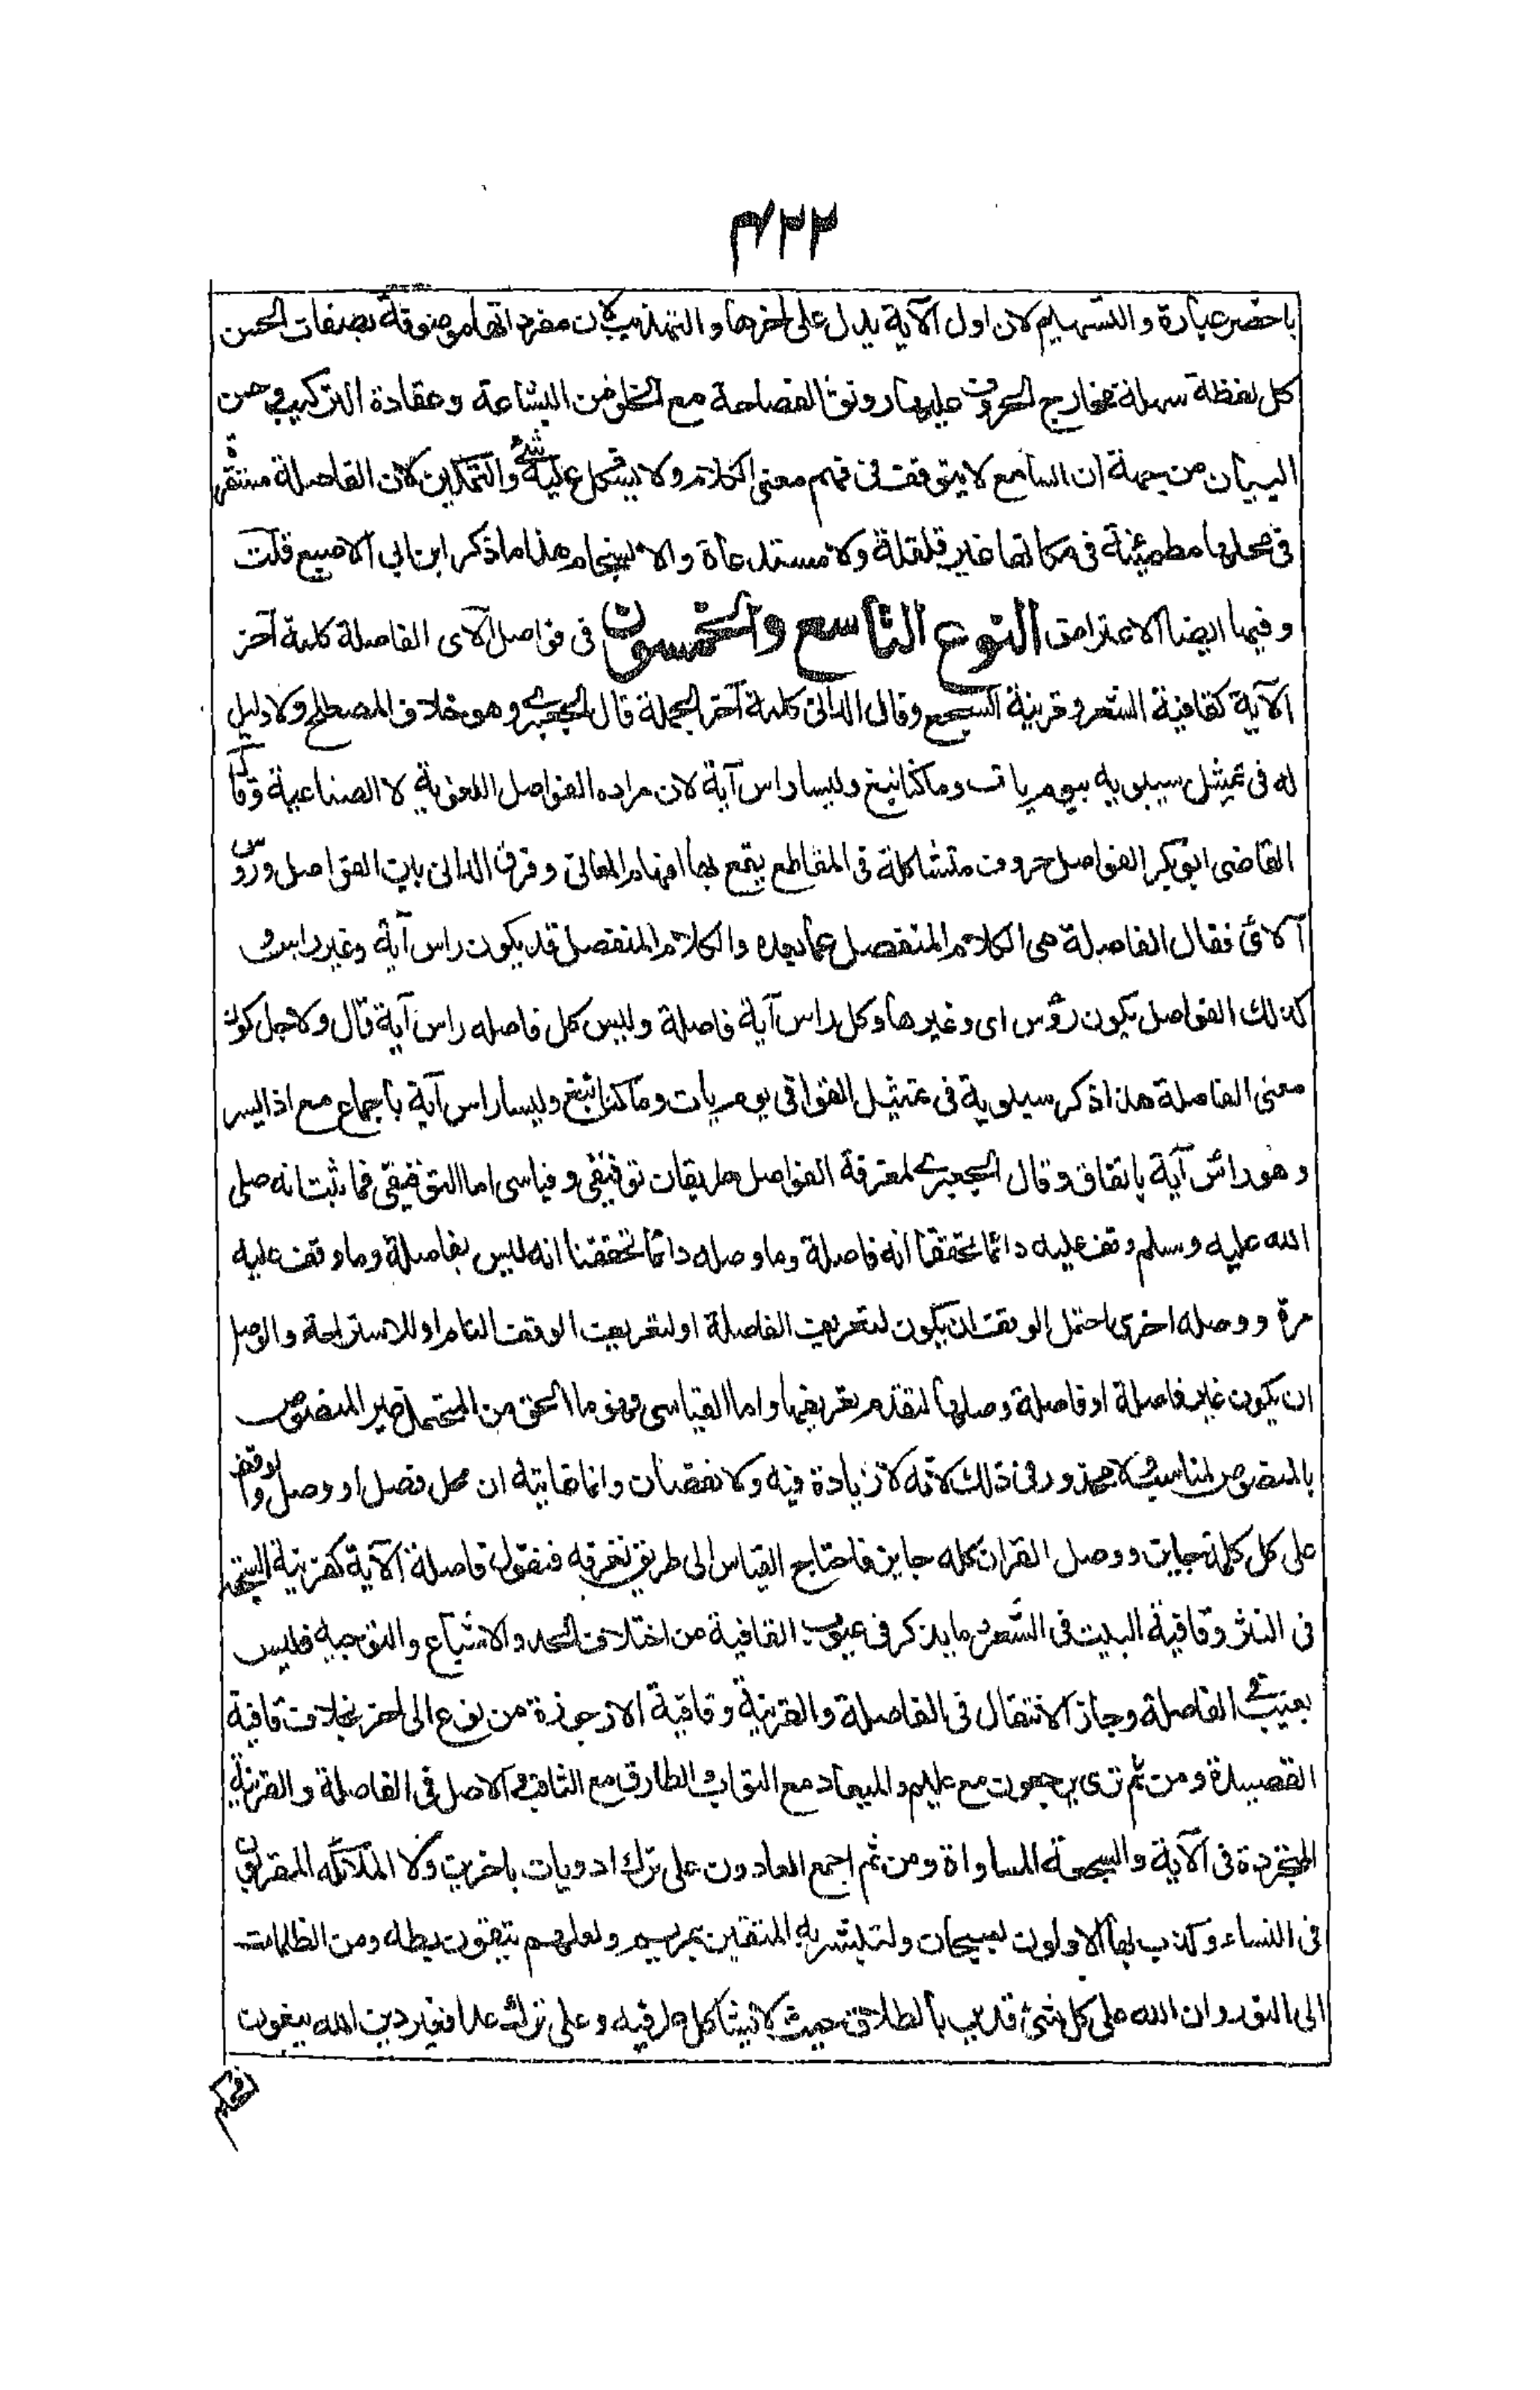 ٤٢٢
باخصر عبارة والتسهيم لان اول الآية يدل على اخرها والتهذيب لان مفرداتها موصوفة بصفات الحسن
كل لفظة سهلة مخارج الحروف عليها رونق الفصاحة مع الخلو من البشاعة وعقادة التركيب وحسن
البيان من جهة ان السامع لا يتوقف فى فهم معنى الكلام ولا يشكل عليه شئ والتمكين لان الفاصلة مستقرة
فى محلها مطمئنة فى مكانها غير قلقلة ولا مستدعاة والانسجام هذا ما ذكر ابن ابى الاصبع قلت
وفيها ايضا الاعتراض النوع التاسع والخمسون فى فواصل الآى الفاصلة كلمة آخر
الآية كقافية الشعر وقرينة السجع وقال الدانى كلمة آخر الجملة قال الجعبرى وهو خلاف المصطلح ولا دليل
له فى تمثيل سيبويه بيوم يات وما كنا نبغ وليسا راس آية لان مراده الفواصل اللغوية لا الصناعية وقال
القاضى ابو بكر الفواصل حروف متشاكلة فى المقاطع يقع بها افهام المعانى وفرق الدانى بين الفواصل وروس
الآى فقال الفاصلة هى الكلام المنفصل عما بعده والكلام المنفصل قد يكون راس آية وغير راس و
كذلك الفواصل يكون روس اى وغيرها وكل راس آية فاصلة وليس كل فاصله راس آية قال ولاجل كون
معنى الفاصلة هذا ذكر سيبويه فى تمثيل القوافى يوم يات وما كنا نبغ وليسا راس آية باجماع مع اذا يسر
وهو راس آية باتفاق وقال الجعبرى لمعرفة الفواصل طريقان توفيقى وقياسى اما التوفيقى فما ثبت انه صلى
الله عليه وسلم وقف عليه دائما تحققنا انه فاصلة وما وصله دائما تحققنا انه ليس بفاصلة وما وقف عليه
مرة ووصله اخرى احتمل الوقف ان يكون لتعريف الفاصلة او لتعريف الوقف التام او للاستراحة والوصل
ان يكون غير فاصلة او فاصلة وصلها لتقدم تعريفها واما القياسى فهو ما الحق من المحتمل غير المنصوص
بالمنصوص لمناسب ولا محذور فى ذلك لانه لا زيادة فيه ولا نقصان وانما غايته ان محل فصل او وصل والوقف
على كل كلمة جايز ووصل القران كله جايز فاحتاج القياس الى طريق تعرفه فنقول فاصلة الآية كقرينة السجعة
فى النثر وقافية البيت فى الشعر وما يذكر فى عيوب القافية من اختلاف الحد والاشباع والتوجيه فليس
بعيب فى الفاصلة وجاز الانتقال فى الفاصلة والقرينة وقافية الارجوزة من نوع الى اخر بخلاف قافية
القصيدة ومن ثم ترى يرجعون مع عليم والميعاد مع الثواب والطارق مع الثاقب والاصل فى الفاصلة والقرينة
المتجردة فى الآية والسجعة المساواة ومن ثم اجمع العادون على ترك اد ويات باخرين ولا الملائكه المقربون
فى النساء وكذب بها الاولون بسبحان ولتبشر به المتقين بمريم ولعلهم يتقون بطه ومن الظلمات
الى النور وان الله على كل شئ قدير بالطلاق حيث لا يشاكل طرفيه وعلى ترك عد افغير دين الله يبغون
افحكم